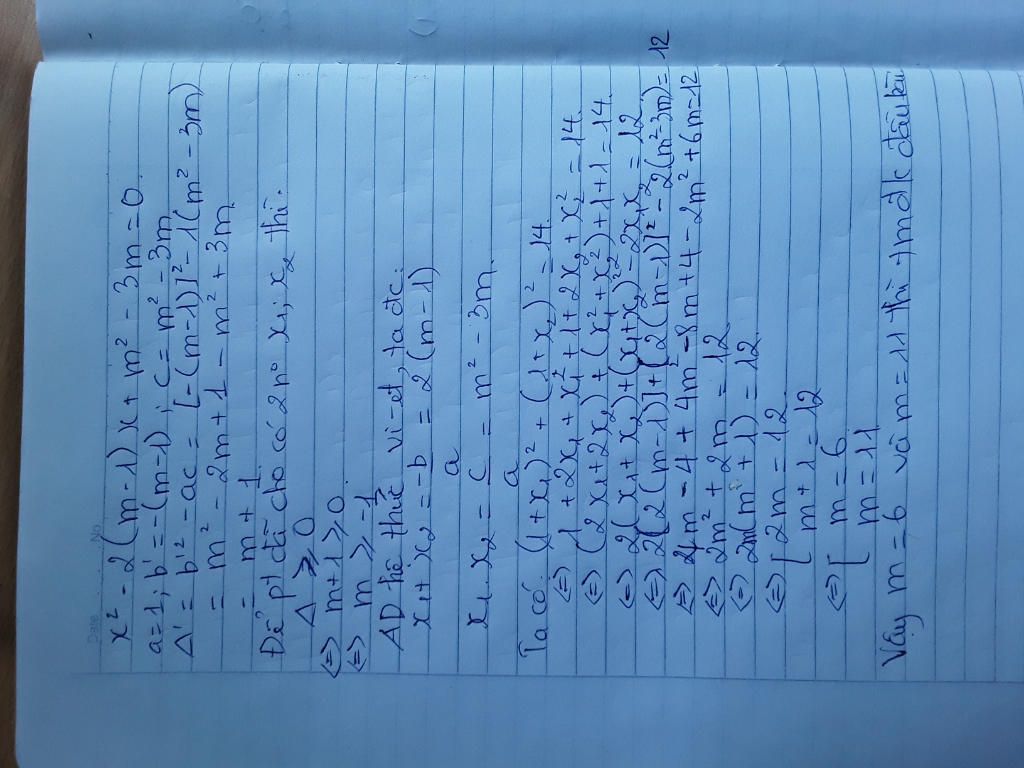 Date No
x² - 2(m-1)x + m² - 3m = 0.
a = 1; b' = -(m-1); c = m² - 3m
Δ' = b'² - ac = [-(m-1)]² - 1(m² - 3m)
= m² - 2m + 1 - m² + 3m
= m + 1
Để pt đã cho có 2 nº x₁; x₂ thì.
Δ' ≥ 0
⇔ m + 1 ≥ 0
⇔ m ≥ -1
AD hệ thức vi-et, ta đc:
x₁ + x₂ = -b/a = 2(m-1)
x₁.x₂ = c/a = m² - 3m.
Ta có: (1+x₁)² + (1+x₂)² = 14.
⇔ 1 + 2x₁ + x₁² + 1 + 2x₂ + x₂² = 14.
⇔ (2x₁ + 2x₂) + (x₁² + x₂²) + 1 + 1 = 14.
⇔ 2(x₁ + x₂) + (x₁+x₂)² - 2x₁x₂ = 12.
⇔ 2[2(m-1)] + [2(m-1)]² - 2(m²-3m) = 12
⇔ 4m - 4 + 4m² - 8m + 4 - 2m² + 6m = 12
⇔ 2m² + 2m = 12
⇔ 2m(m + 1) = 12.
⇔ [ 2m = 12
m + 1 = 12
⇔ [ m = 6
m = 11
Vậy m = 6 và m = 11 thì tmđk đầu bài